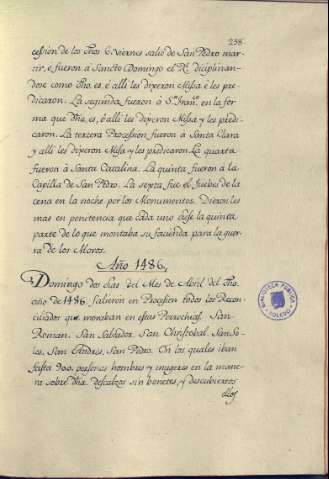 238
cession de los dhos 6 viernes salio de San Pedro mar-
tir, e fueron á Sancto Domingo el Rl diciplinan-
dose como dho es, é alli les dixeron Missa é les pre-
dicaron. La segunda fueron á Sn Franco en la for-
ma que dha es, é alli les dixeron Missa y les predi-
caron. La tercera Procession fueron á Santa Clara
y alli les dixeron Missa y les predicaron. La quarta
fueron á Santa Catalina. La quinta fueron á la
Capilla de San Pedro. La sexta fue el Juebes de la
cena en la noche por los Monumentos. Dieronles
mas en penitencia que cada uno diesse la quinta
parte de lo que montaba su facienda para la guer-
ra de los Moros.
Año 1486,
Domingo dos dias del Mes de Abril del dho
año de 1486 salieron en Procession todos los Recon-
ciliados que moraban en estas Parrochias. San
Roman. San Salbador. San Christobal. San So-
les, San Andres, San Pedro. En los quales iban
fasta 900 personas hombres y mugeres en la mane-
ra sobre dha descalzos sin bonetes, y descubiertos
ellos
BIBLIOTECA PUBLICA
TOLEDO